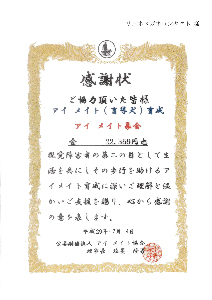 感謝状
ご協力頂いた皆様
アイメイト(盲導犬)育成
アイメイト基金
金 22,559円也
視覚障害者の第二の目として生
活を共にしその歩行を助けるア
イメイト育成に深いご理解と温
かいご支援を賜り、心から感謝
の意を表します。
平成29年7月4日
公益財団法人 アイメイト協会
理事長